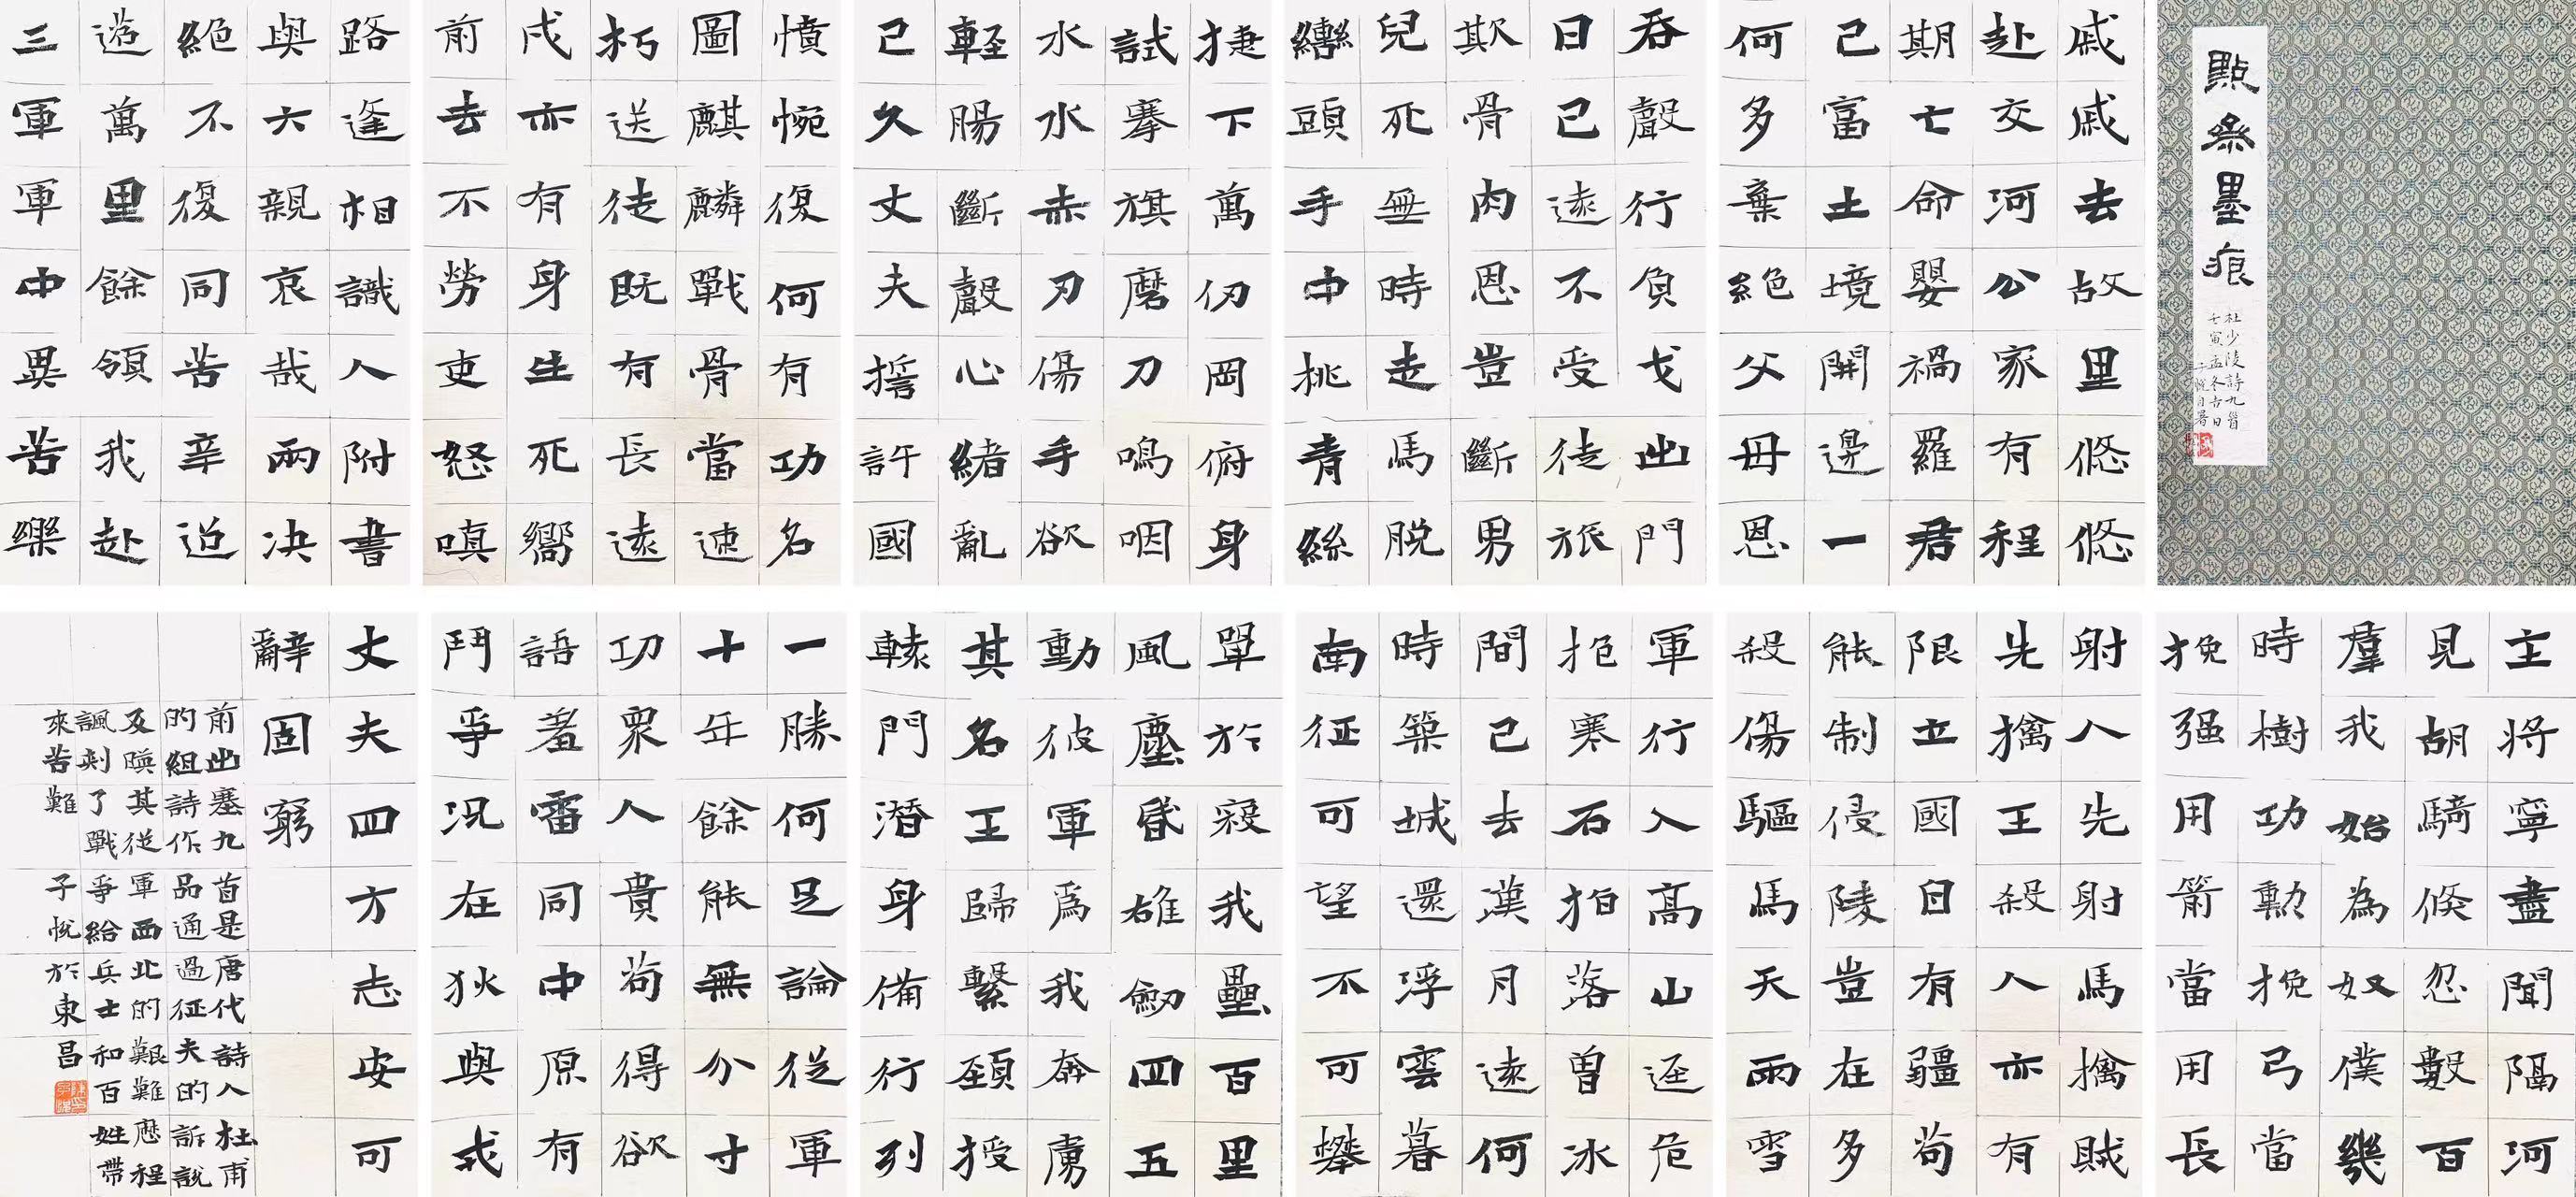 點墨痕
杜少陵詩九首
壬寅孟冬吉日
子悅自署
戚戚去故里悠悠
赴交河公家有程
期亡命嬰禍羅君
已富土境開邊一
何多棄絕父母恩
吞聲行負戈出門
日已遠不受徒旅
欺骨肉恩豈斷男
兒死無時走馬脫
轡頭手中挑青絲
捷下萬仞岡俯身
試搴旗磨刀鳴咽
水水赤刃傷手欲
輕腸斷聲心緒亂
已久丈夫誓許國
憤惋復何有功名
圖麒麟戰骨當速
朽送徒既有長遠
戍亦有身生死嚮
前去不勞吏怒嗔
路逢相識人附書
與六親哀哉兩決
絕不復同苦辛迢
遞萬里餘領我赴
三軍軍中異苦樂
主將寧盡聞隔河
見胡騎倏忽數百
羣我始為奴僕幾
時樹功勳挽弓當
挽强用箭當用長
射人先射馬擒賊
先擒王殺人亦有
限立國自有疆苟
能制侵陵豈在多
殺傷驅馬天雨雪
軍行入高山逕危
抱寒石指落曾冰
間已去漢月遠何
時築城還浮雲暮
南征可望不可攀
單于寇我壘百里
風塵昏雄劒四五
動彼軍為我奔虜
其名王歸繫頸授
轅門潛身備行列
一勝何足論從軍
十年餘能無分寸
功眾人貴苟得欲
語羞雷同中原有
鬥爭況在狄與戎
丈夫四方志安可
辭固窮
前出塞九首是唐代詩人杜甫
的組詩作品通過征夫的訴說
及其從軍西北的艱難歷程
諷刺了戰爭給兵士和百姓帶
來苦難 子悅於東昌